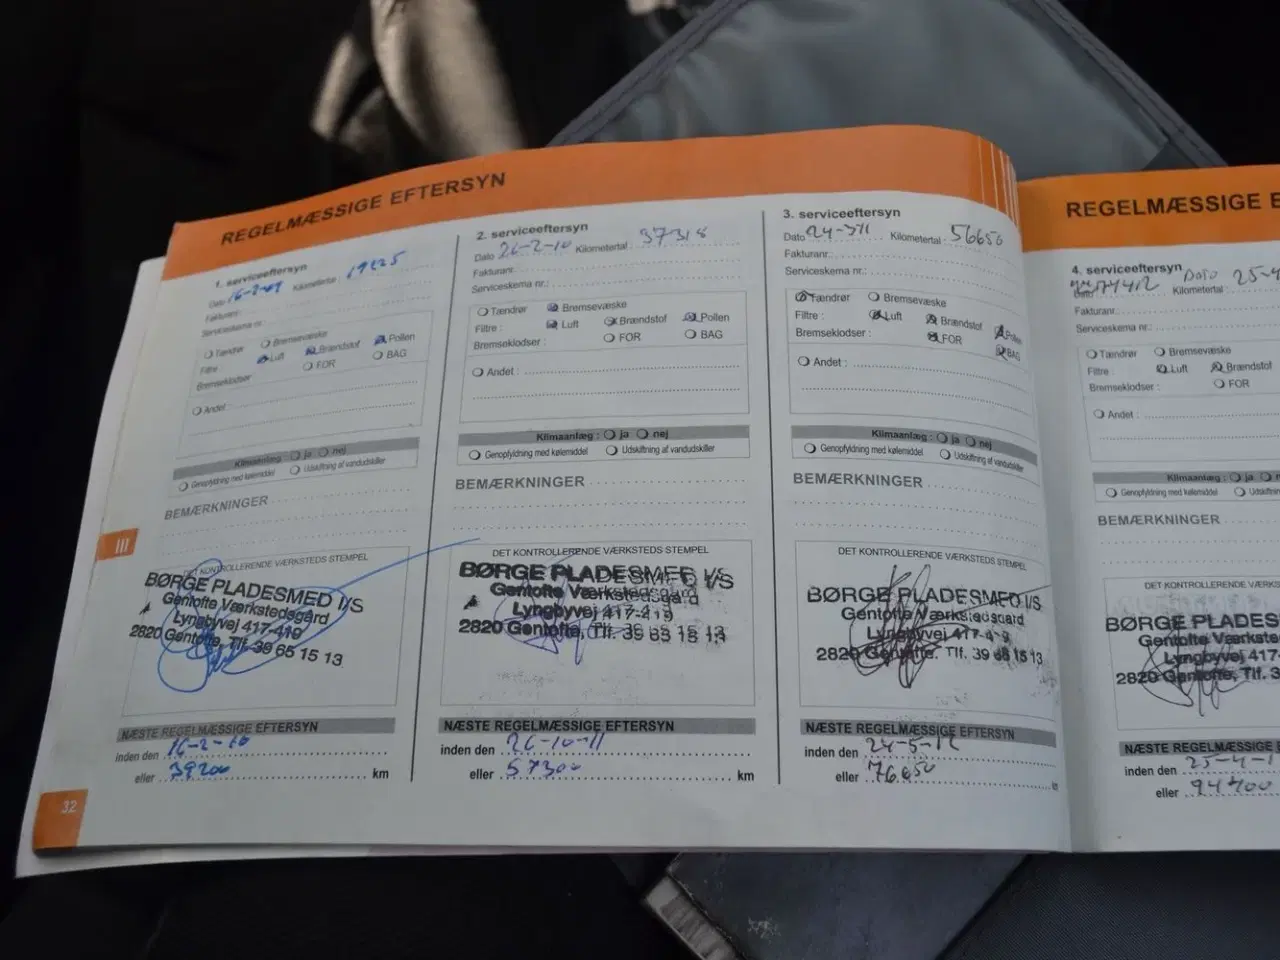 REGELMÆSSIGE EFTERSYN
1. serviceeftersyn
Dato 16-2-09 Kilometertal: 19225
Fakturanr.:
Serviceskema nr.:
Tændrør Bremsevæske
Filtre Luft Brændstof Pollen
Bremseklodser FOR BAG
Andet:
Klimaanlæg: ja nej
Genopfyldning med kølemiddel Udskiftning af vandudskiller
BEMÆRKNINGER
DET KONTROLLERENDE VÆRKSTEDS STEMPEL
BØRGE PLADESMED I/S
Gentofte Værkstedsgård
Lyngbyvej 417-419
2820 Gentofte, Tlf. 39 65 15 13
NÆSTE REGELMÆSSIGE EFTERSYN
inden den 16-2-10
eller 39200 km
2. serviceeftersyn
Dato 26-2-10 Kilometertal: 37318
Fakturanr.
Serviceskema nr.:
Tændrør Bremsevæske
Filtre : Luft Brændstof Pollen
Bremseklodser : FOR BAG
Andet :
Klimaanlæg : ja nej
Genopfyldning med kølemiddel Udskiftning af vandudskiller
BEMÆRKNINGER
DET KONTROLLERENDE VÆRKSTEDS STEMPEL
BØRGE PLADESMED I/S
Gentofte Værkstedsgård
Lyngbyvej 417-419
2820 Gentofte, Tlf. 39 65 15 13
NÆSTE REGELMÆSSIGE EFTERSYN
inden den 26-10-11
eller 57300 km
3. serviceeftersyn
Dato Kilometertal: 56650
Fakturanr.:
Serviceskema nr.:
Tændrør Bremsevæske
Filtre : Luft Brændstof Pollen
Bremseklodser : FOR BAG
Andet :
Klimaanlæg : ja nej
Genopfyldning med kølemiddel Udskiftning af vandudskiller
BEMÆRKNINGER
DET KONTROLLERENDE VÆRKSTEDS STEMPEL
BØRGE PLADESMED I/S
Gentofte Værkstedsgård
Lyngbyvej 417-419
2820 Gentofte. Tlf. 39 65 15 13
NÆSTE REGELMÆSSIGE EFTERSYN
inden den 24-5-12
eller 76650
32
III
REGELMÆSSIGE E
4. serviceeftersyn
Dato 74412 Kilometertal: DATO 25-4
Fakturanr.:
Serviceskema nr.:
Tændrør Bremsevæske
Filtre : Luft Brændstof
Bremseklodser : FOR
Andet :
Klimaanlæg : ja
Genopfyldning med kølemiddel
BEMÆRKNINGER
DET KONTROLLERENDE VÆRKSTEDS
BØRGE PLADES
Gentofte Værkstedsg
Lyngbyvej 417-
2820 Gentofte, Tlf. 3
NÆSTE REGELMÆSSIGE E
inden den 25-4-1
eller 94400